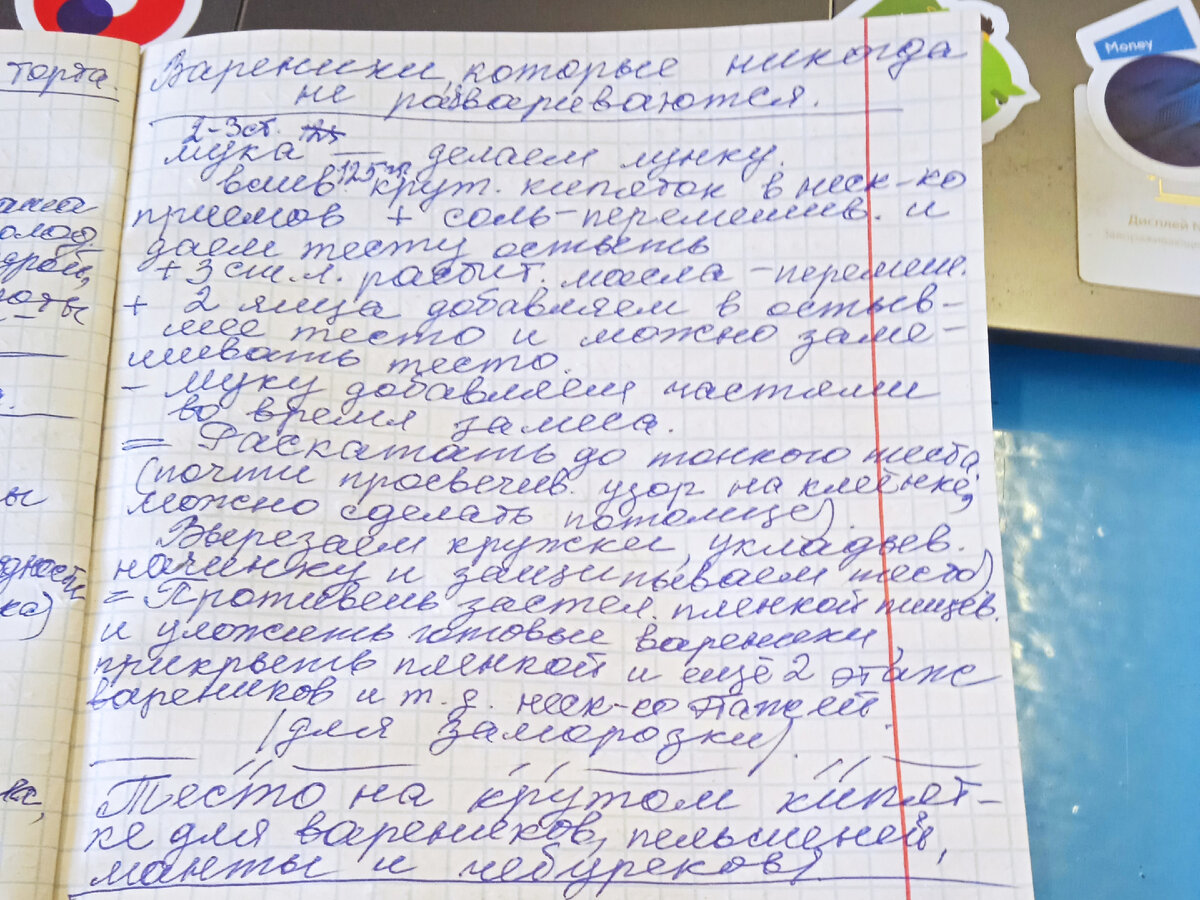 торта.
Вареники, которые никогда
не развариваются.
2-3 ст.
мука — делаем лунку.
125 гр.
влив крут. кипяток в неск-ко
приемов + соль-перемешив. и
даем тесту остыть
+ 3 ст.л. растит. масла - перемеш.
+ 2 яйца добавляем в остыв-
шее тесто и можно заме-
шивать тесто.
- муку добавляем частями
во время замеса.
= Раскатать до тонкого теста
(почти просвечив. узор на клеёнке,
можно сделать потолще).
Вырезаем кружки, укладыв.
начинку и защипываем тесто)
= Противень застел. пленкой пищев.
и уложить готовые вареники,
прикрыть пленкой и ещё 2 этаж
вареников и т.д. неск-ко этажей.
(для заморозки).
Тесто на крутом кипят-
ке для вареников, пельменей,
манты и чебуреков).
ы
ка)
Money
Дисплей